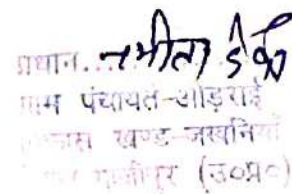 प्रधान.... नमीता देवी
ग्राम पंचायत-ओड़राई
विकास खण्ड-जखनियाँ
गाजीपुर (उ०प्र०)